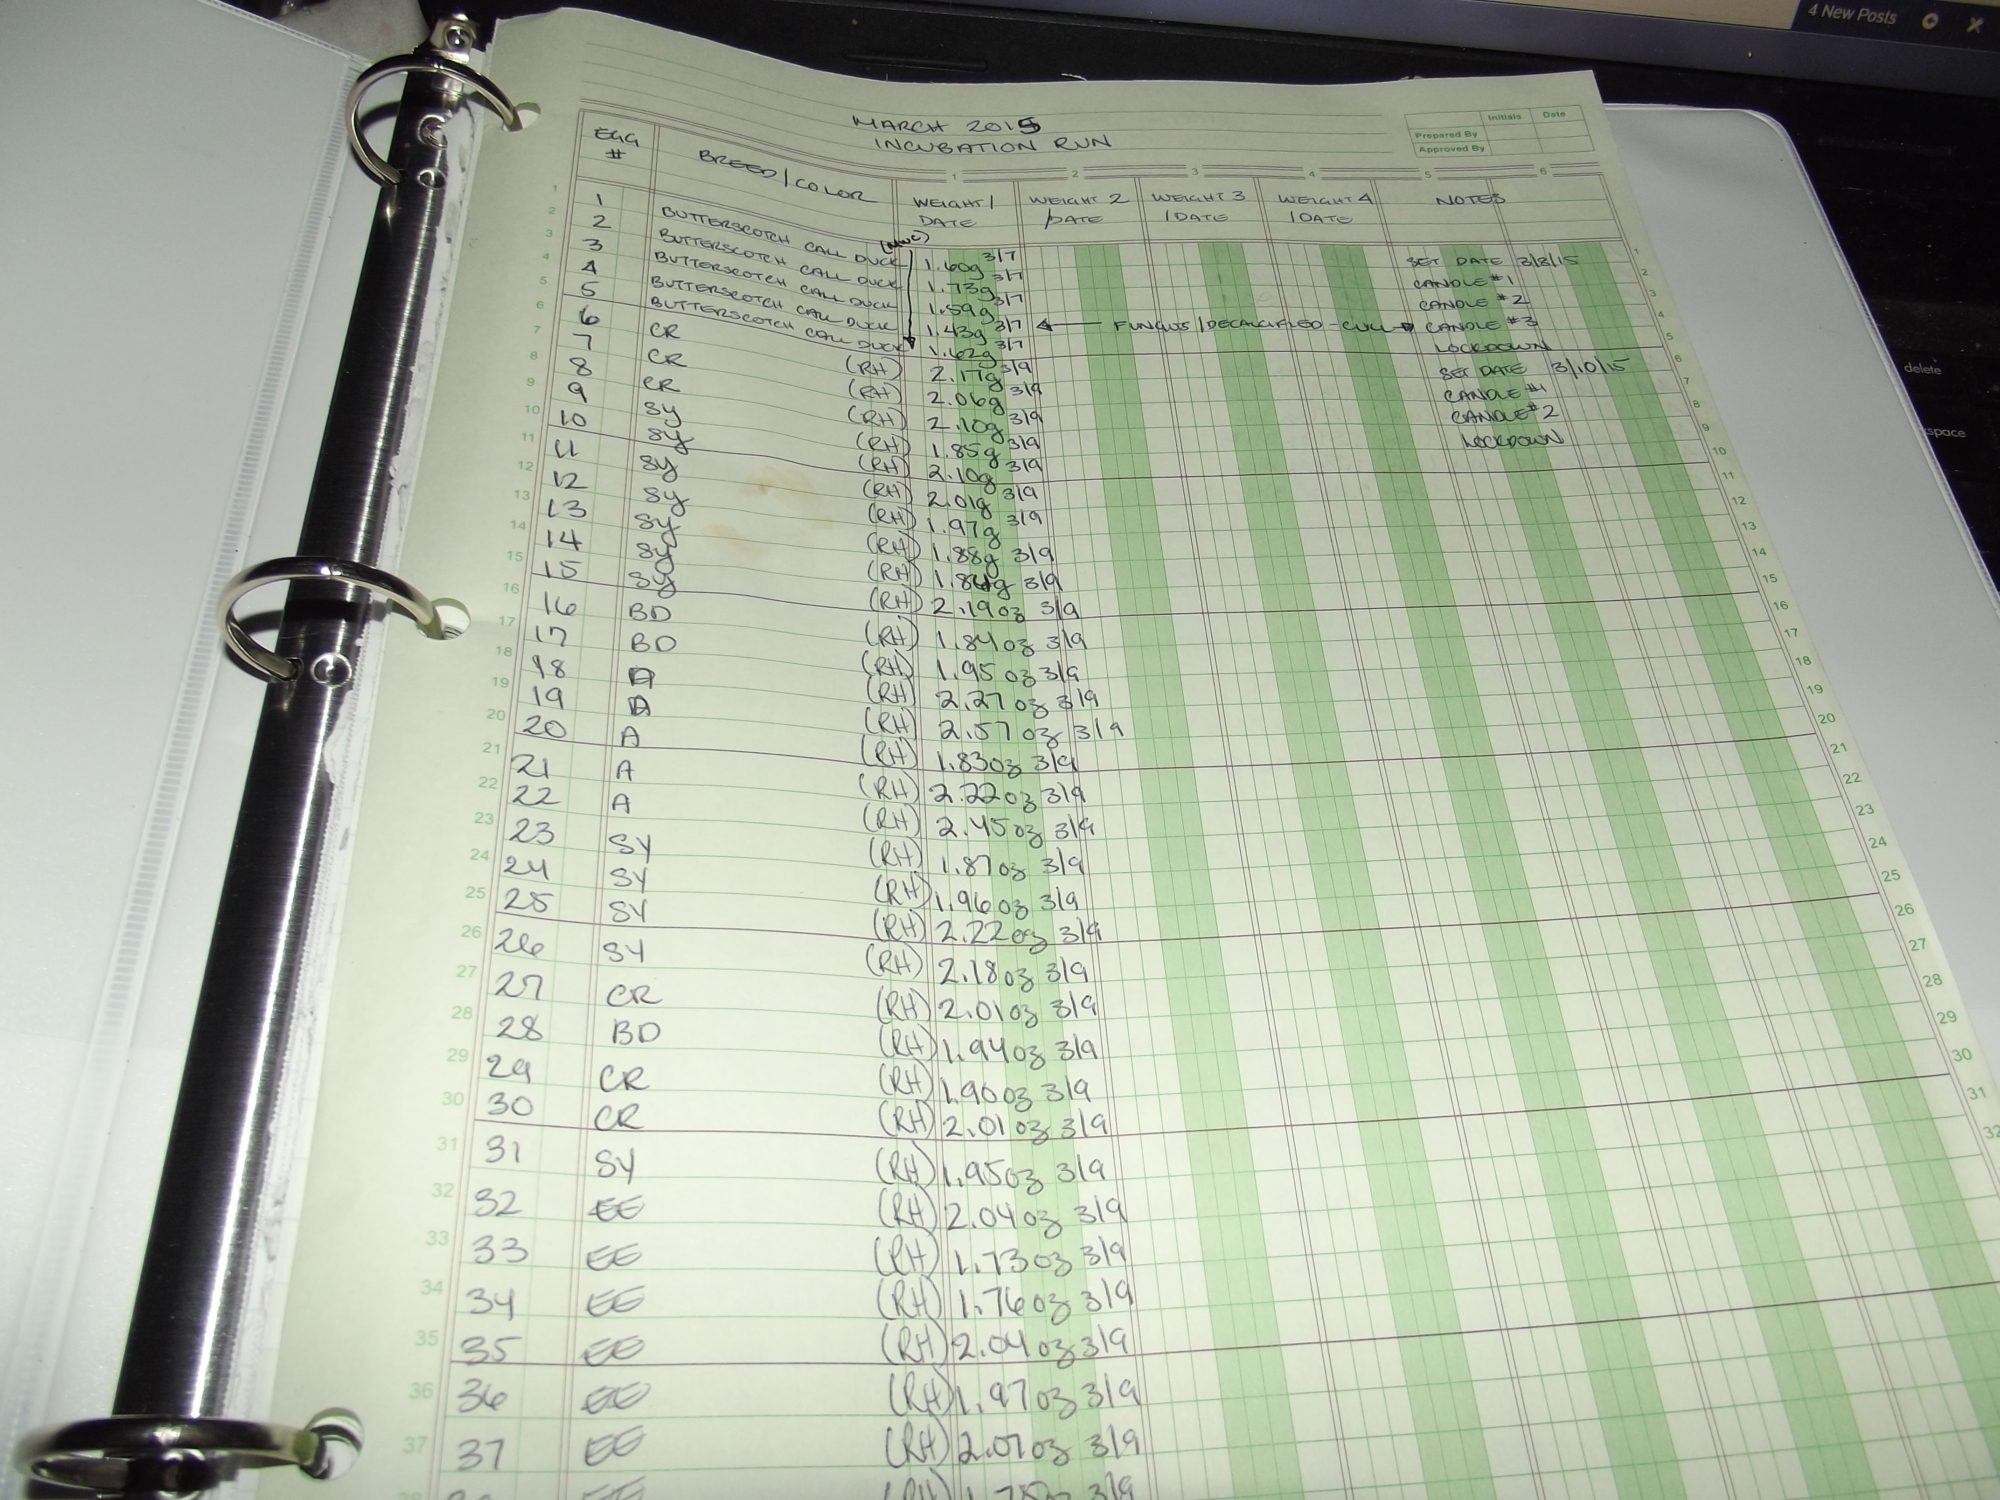 4 New Posts
MARCH 2015
INCUBATION RUN
Initials Date
Prepared By
Approved By
1 2 3 4 5 6
EGG # BREED/COLOR WEIGHT/ DATE WEIGHT 2 /DATE WEIGHT 3 /DATE WEIGHT 4 /DATE NOTES
1 1 BUTTERSCOTCH CALL DUCK 1.60g 3/7 SET DATE 3/8/15 1
2 2 BUTTERSCOTCH CALL DUCK 1.73g 3/7 CANDLE #1 2
3 3 BUTTERSCOTCH CALL DUCK 1.59g 3/7 CANDLE #2 3
4 4 BUTTERSCOTCH CALL DUCK 1.43g 3/7 FUNGUS/DECALCIFIED-CULL CANDLE #3 4
5 5 BUTTERSCOTCH CALL DUCK 1.62g 3/7 LOCKDOWN 5
6 6 CR (RH) 2.17g 3/9 SET DATE 3/10/15 6
7 7 CR (RH) 2.06g 3/9 CANDLE #1 7
8 8 CR (RH) 2.10g 3/9 CANDLE #2 8
9 9 SY (RH) 1.85g 3/9 LOCKDOWN 9
10 10 SY (RH) 2.10g 3/9 10
11 11 SY (RH) 2.01g 3/9 11
12 12 SY (RH) 1.97g 3/9 12
13 13 SY (RH) 1.88g 3/9 13
14 14 SY (RH) 1.84g 3/9 14
15 15 SY (RH) 2.19oz 3/9 15
16 16 BD (RH) 1.84oz 3/9 16
17 17 BD (RH) 1.95oz 3/9 17
18 18 A (RH) 2.27oz 3/9 18
19 19 A (RH) 2.57oz 3/9 19
20 20 A (RH) 1.83oz 3/9 20
21 21 A (RH) 2.22oz 3/9 21
22 22 A (RH) 2.45oz 3/9 22
23 23 SY (RH) 1.87oz 3/9 23
24 24 SY (RH) 1.96oz 3/9 24
25 25 SY (RH) 2.22oz 3/9 25
26 26 SY (RH) 2.18oz 3/9 26
27 27 CR (RH) 2.01oz 3/9 27
28 28 BD (RH) 1.94oz 3/9 28
29 29 CR (RH) 1.90oz 3/9 29
30 30 CR (RH) 2.01oz 3/9 30
31 31 SY (RH) 1.95oz 3/9 31
32 32 EE (RH) 2.04oz 3/9 32
33 33 EE (RH) 1.73oz 3/9
34 34 EE (RH) 1.76oz 3/9
35 35 EE (RH) 2.04oz 3/9
36 36 EE (RH) 1.97oz 3/9
37 37 EE (RH) 2.07oz 3/9
38 EE (RH) 3/9
delete
space